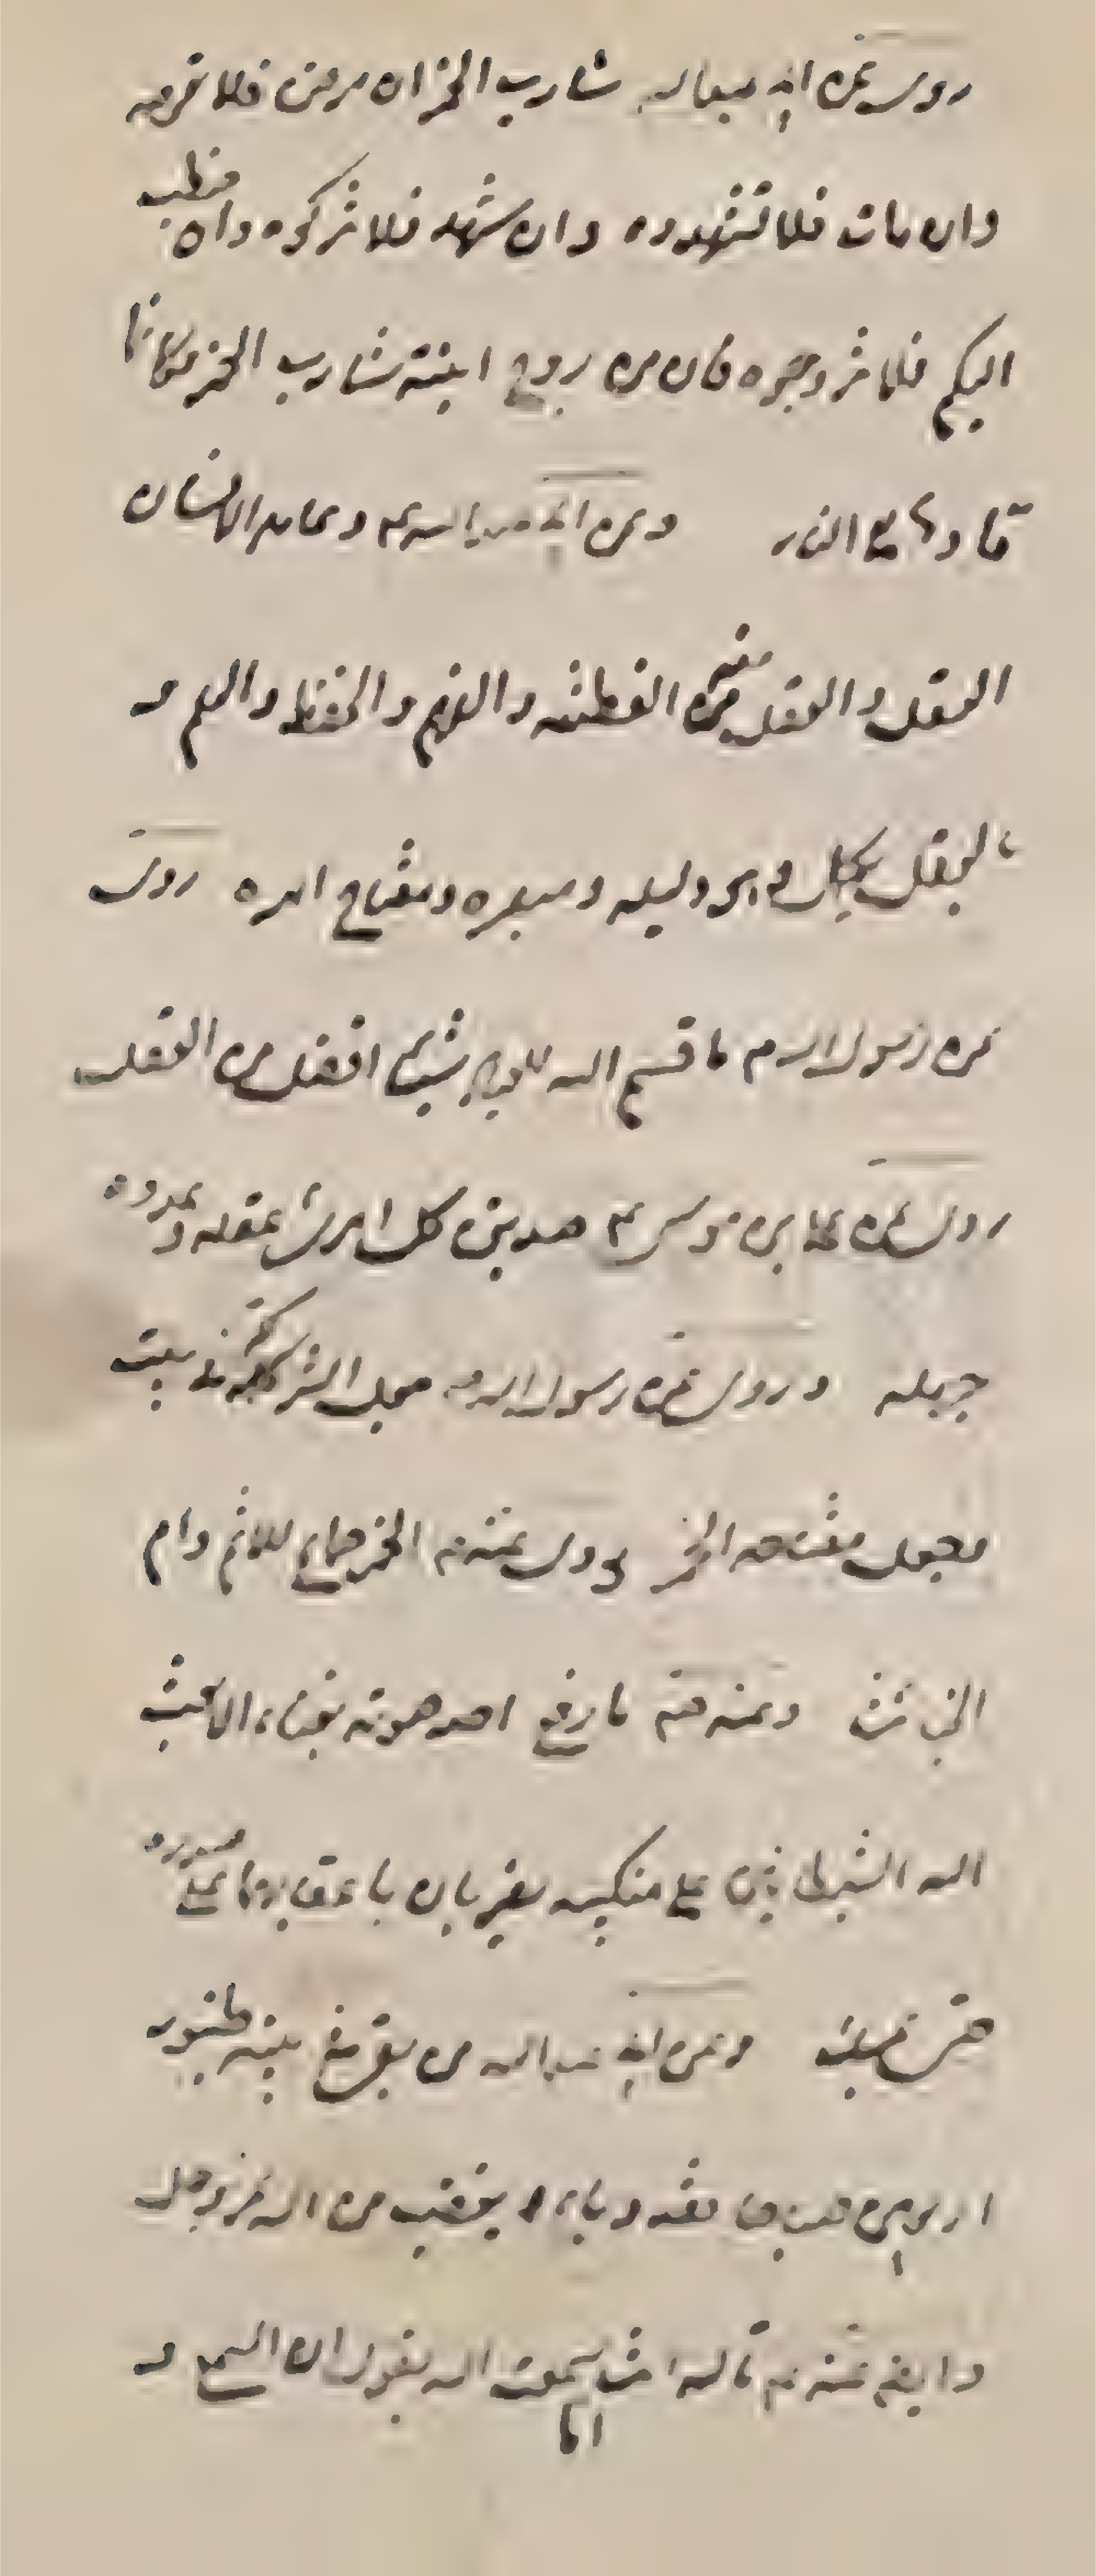 روى عن ابي عبدالله شارب الخمر ان مرض فلا تعوده
وان مات فلا تشهدوه وان شهد فلا تزكوه وان خطب
اليكم فلا تزوجوه فان من زوج ابنته شارب الخمر فكانما
قادها الى النار وعن ابي عبدالله ع دعامة الانسان
العقل والعقل منه الفطنة والفهم والحفظ والعلم و
بالعقل يكمل وهو دليله ومبصره ومفتاح امره روى
عن رسول الله ص ما قسم الله للعباد شيئا افضل من العقل
روى عن علي بن موسى ع صديق كل امرئ عقله وعدوه
جهله وروى عن رسول الله ص جعل الشر كله في بيت
وجعل مفتاحه الخمر روى عنه ص الخمر جماع الاثم وام
الخبائث وعنه ص ما رفع احد صوته بغناء الا بعث
الله الشيطانين على منكبيه يضربان باعقابهما على صدره
حتى يمسك وعن ابي عبدالله من بقي في بيته طنبور
اربعين صباحا فقد باء بغضب من الله عز وجل
وايضا عنه ع قال اما سمعت الله يقول ان السمع و